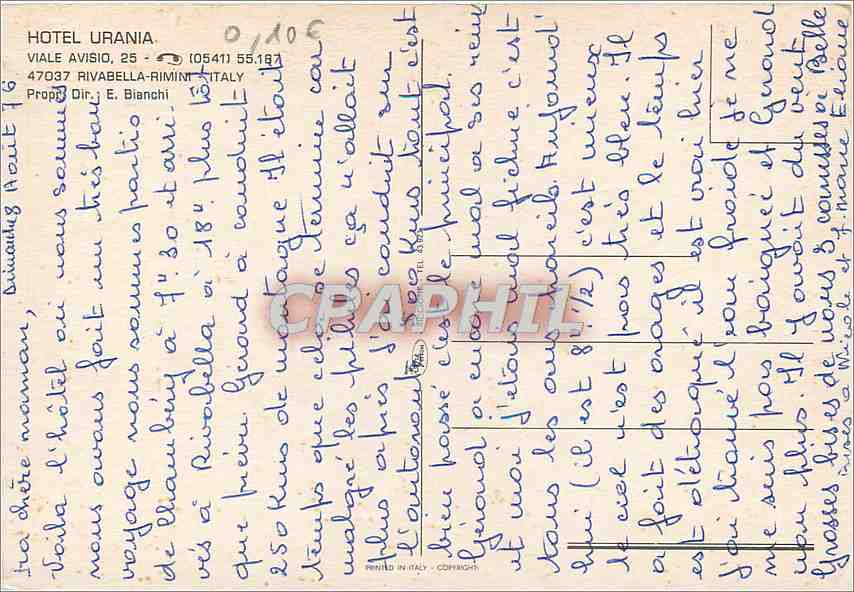 HOTEL URANIA
VIALE AVISIO, 25 - (0541) 55.167
47037 RIVABELLA-RIMINI - ITALY
Propr. Dir.: E. Bianchi
0,10€
PRINTED IN ITALY - COPYRIGHT
CPARHIL
Dimanche 8 Août 76
Ma chère maman,
Voila l'hôtel où nous sommes
nous avons fait un très bon
voyage nous sommes partis
de Chambéry à 7h30 et arri-
vés à Rivabella à 18h plus tôt
que prévu. Gérard à conduit
250 Kms de montagne Il était
temps que cela se termine car
malgré les pilules ça n'allait
plus après j'ai conduit sur
l'autoroute 500 Kms tout c'est
bien passé c'est le principal.
Gérard a encore mal a ses reins
et moi j'étais mal fichue c'est
tous les ans pareils Aujourd'
hui (il est 8h 1/2) c'est mieux
le ciel n'est pas très bleu. Il
a fait des orages et le temps
est détraqué il est vrai hier
j'ai trouvé l'eau froide je ne
me suis pas baignée et Gérard
non plus. Il y avait du vent
Grosses bises de nous 3
bises a Nicole et J. Marc